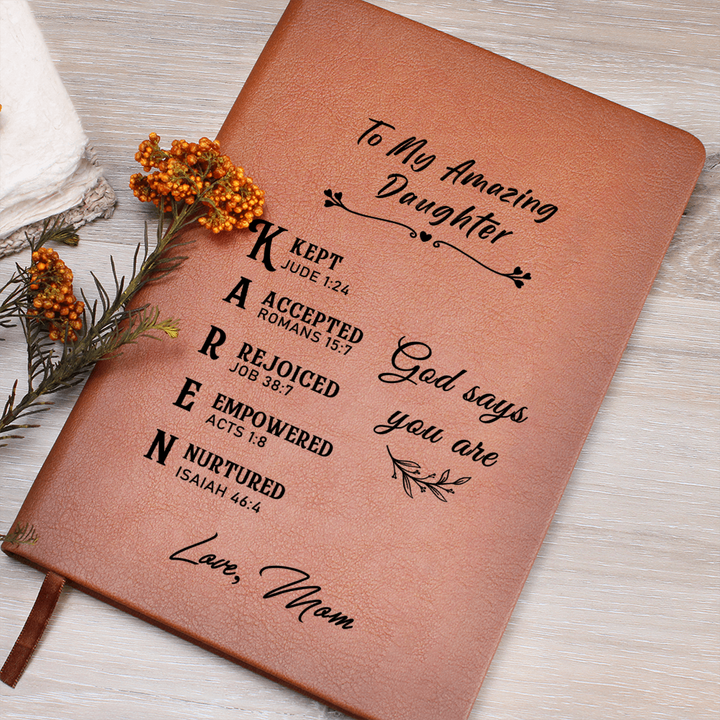 To My Amazing
Daughter
K KEPT
JUDE 1:24
A ACCEPTED
ROMANS 15:7
R REJOICED
JOB 38:7
E EMPOWERED
ACTS 1:8
N NURTURED
ISAIAH 46:4
God says
you are
Love, Mom